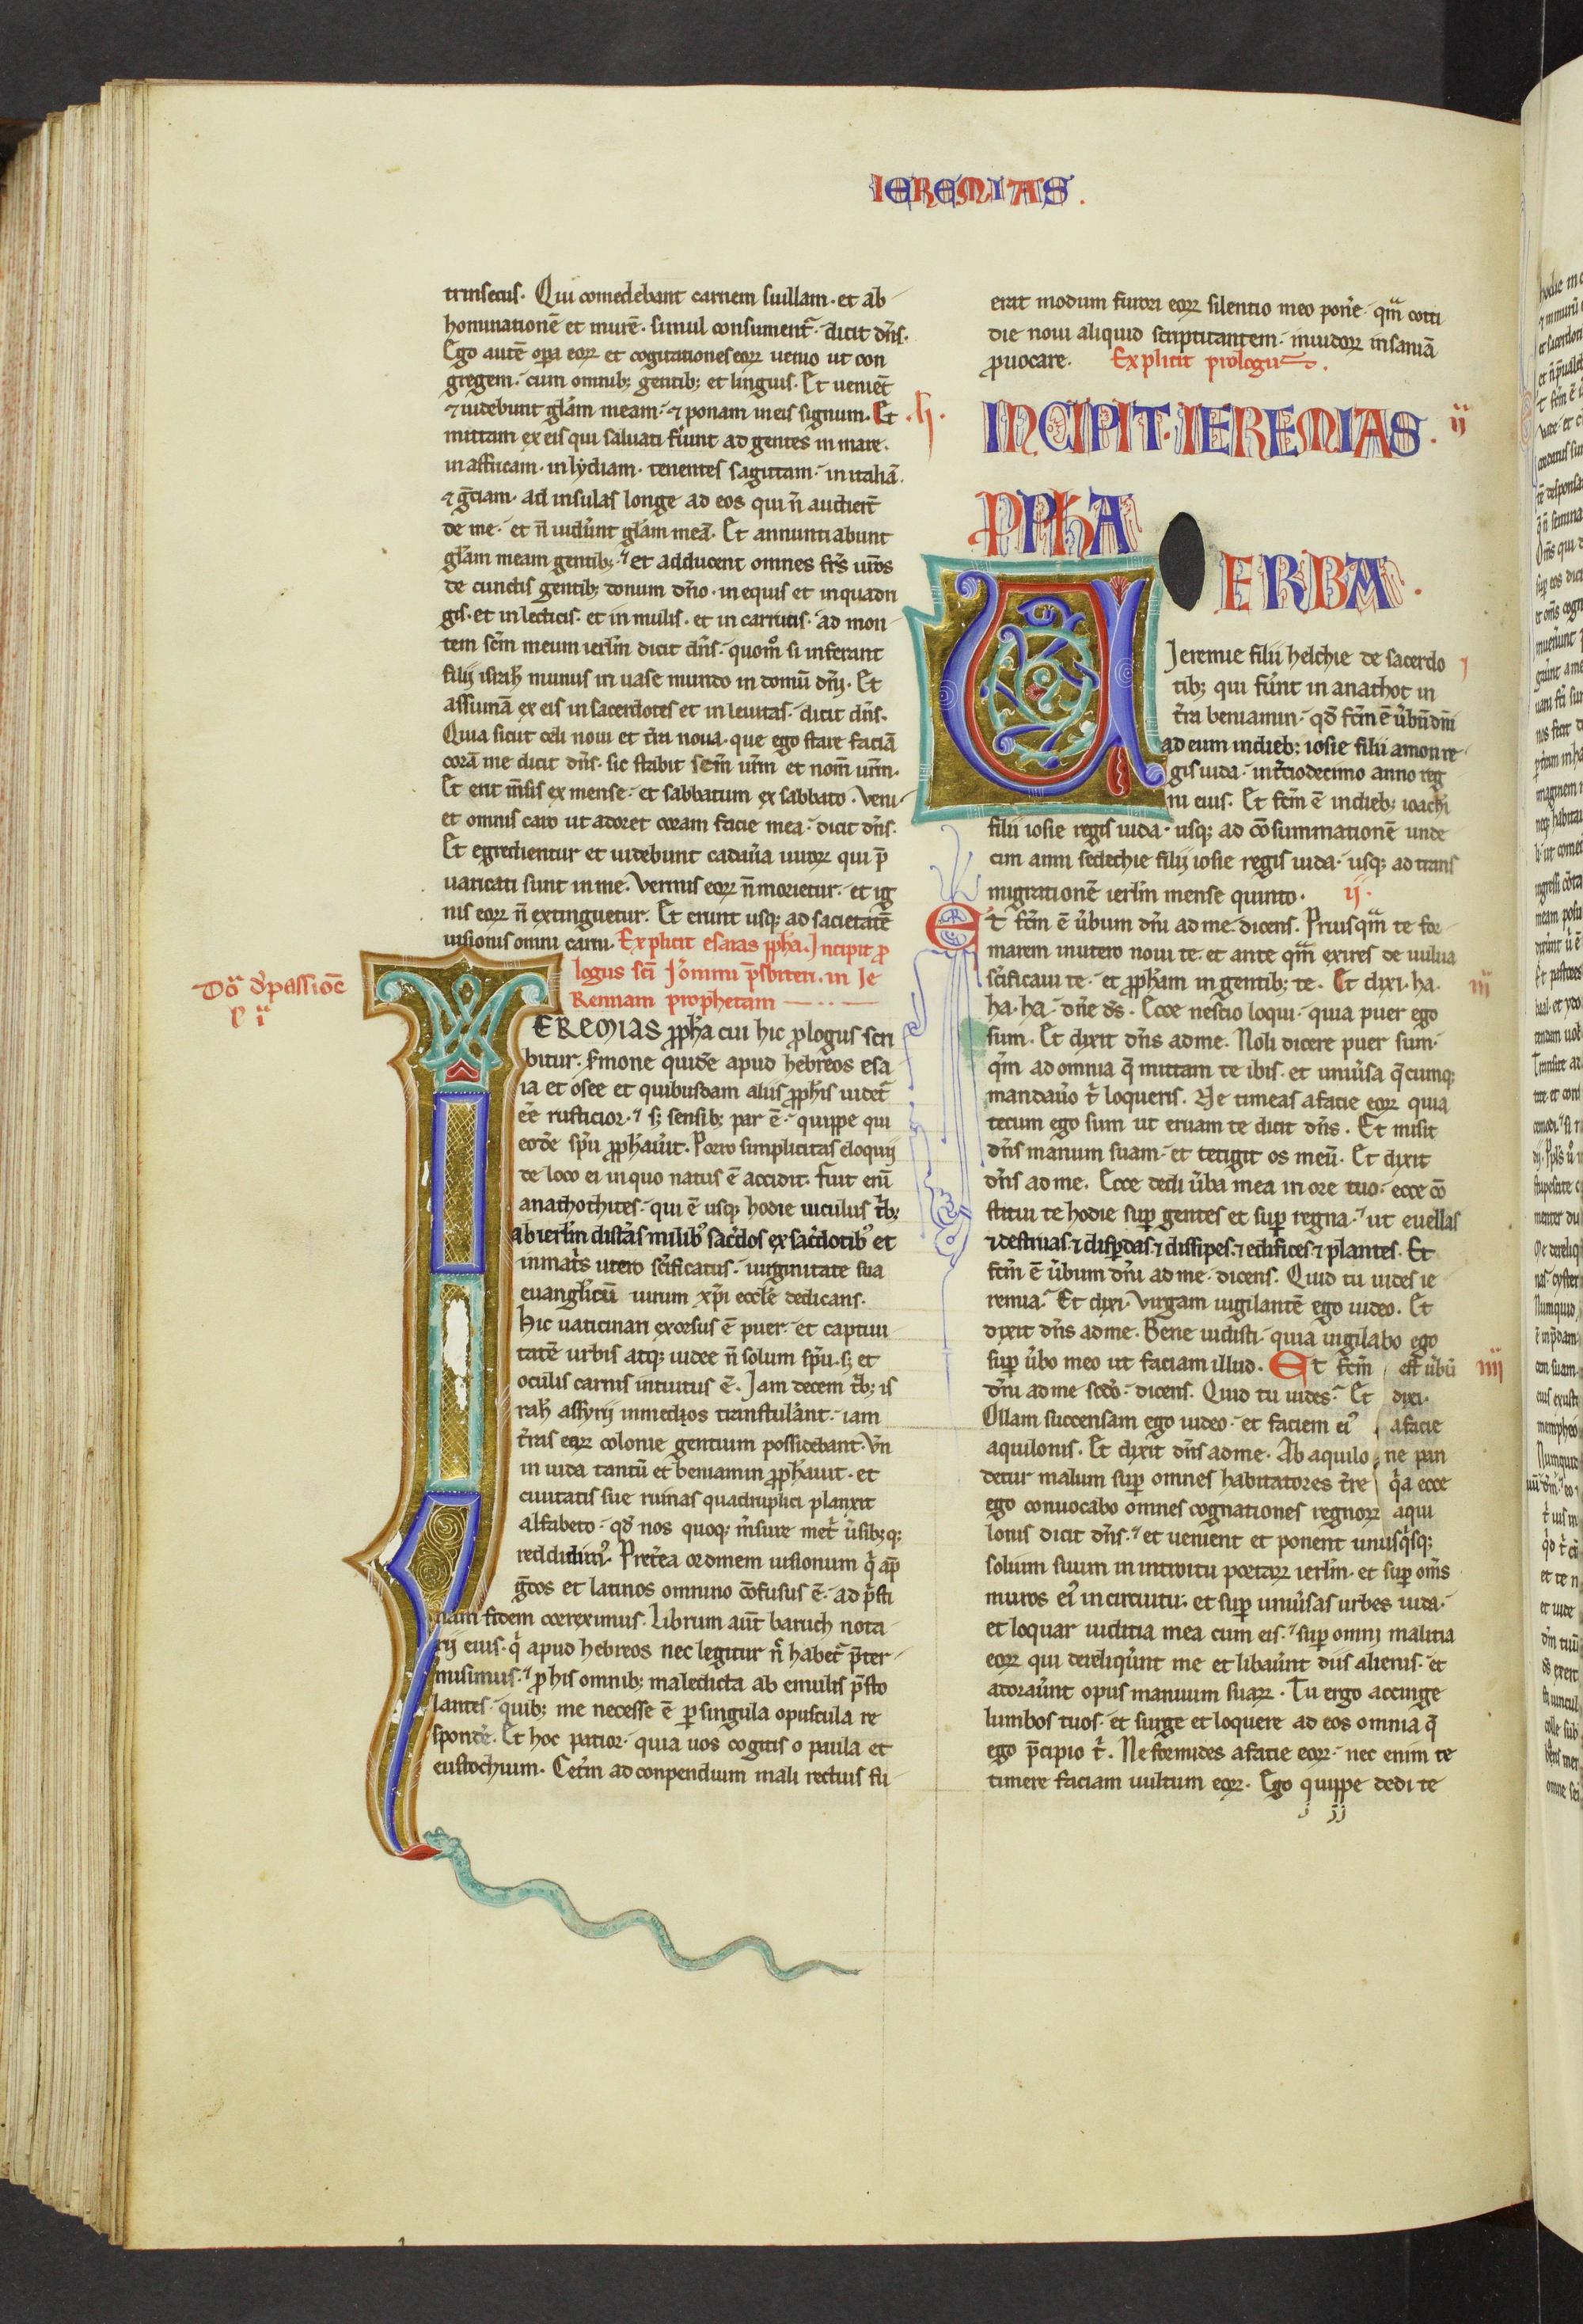 IEREMIAS.
trinsecus. Qui comedebant carnem suillam. et ab
hominationē et murē. simul consument᷑. dicit dn̄s.
Ego autē oꝑa eoꝝ et cogitationes eoꝝ uenio ut con
gregem. cum omnib; gentib; et linguis. Et ueniēt
⁊ uidebunt gl̄am meam. ⁊ ponam in eis signum. Et
mittam ex eis qui saluati fu̾int ad gentes in mare.
in affricam. in lydiam. tenentes sagittam. in italiā.
⁊ g̅ciam. ad insulas longe ad eos qui n̄ audiert̄
de me. et n̄ uider̄unt gl̄am meā. Et annuntiabunt
gl̄am meam gentib; et adducent omnes fr̄s ur̄os
de cunctis gentib; donum dn̄o. in equis et in quadri
gis. et in lecticis. et in mulis. et in carrucis. ad mon
tem sc̄m meum ierl̄m dicit dn̄s. quom̊ si inferant
filij isrl̄ munus in uase mundo in domū dn̄i. Et
assumā ex eis in sacerdotes et in leuitas. dicit dn̄s.
Quia sicut celi noui et t̾ra noua. que ego stare faciā
corā me dicit dn̄s. sic stabit sem̄ ur̄m et nom̄ ur̄m.
Et erit m̄sis ex mense. et sabbatum ex sabbato. Veni
et omnis caro ut adoret coram facie mea. dicit dn̄s.
Et egredientur et uidebunt cadau̾a uiroꝝ qui p̄
uaricati sunt in me. Vermis eoꝝ n̄ morietur. et ig
nis eoꝝ n̄ extinguetur. Et erunt usq; ad sacietatē
uisionis omni carni. Explicit esaias ꝓph̄a. Incipit ꝓ
logus sc̄i Ieronimi p̄sbiteri. in Ie
Remiam prophetam
EREMIAS ꝓph̄a cui hic ꝓlogus scri
bitur. s̾mone quidē apud hebreos esa
ia et osee et quibusdam aliis ꝓph̄is uidet᷑
ēē rusticior. s; sensib; par ē. quippe qui
eodē spū ꝓph̄au̾it. Porro simplicitas eloquij
de loco ei in quo natus ē accidit. Fuit enī
anathothites. qui ē usq; hodie uiculus t̾b;
ab ierl̄m distās milib; sac̾dos ex sac̾dotib; et
in mat̾s utero sc̄ificatus. uirginitate sua
euangl̄icū uirum xp̄i eccl̄e dedicans.
Hic uaticinari exorsus ē puer. et captiui
tatē urbis atq; iudee n̄ solum spū. s; et
oculis carnis intuitus ē. Iam decem t̾b; is
rah̄ assyrij in medos transtulerant. iam
t̾ras eoꝝ colonie gentium possidebant. Vn̄
in iuda tantū et beniamin ꝓph̄auit. et
ciuitatis sue ruinas quadruplici planxit
alfabeto. qd̄ nos quoq; m̄sure met̾ u̾sib; q;
reddidim̾. Pret̾ea ordinem uisionum q̇ ap̄
g̅cos et latinos omnino cōfusus ē. ad ṗsti
nam fidem correximus. Librum aūt baruch nota
rij eius. q̇ apud hebreos nec legitur n̄ habet᷑ p̄ter
misimus. ꝓ his omnib; maledicta ab emulis p̄sto
lantes. quib; me necesse ē ꝑ singula opuscula re
spondē. Et hoc patior. quia uos cogitis o paula et
eustochium. Cet̾m ad conpendium mali rectius fu
erat modum furori eoꝝ silentio meo ponē. qm̄ cotti
die noui aliquid scriptitantem. inuidoꝝ insaniā
ꝓuocare. Explicit prologus.
INCIPIT. IEREMIAS. ii
PPHA
VERBA.
Ieremie filii helchie de sacerdo
tib; qui fu̾nt in anathot in
t̾ra beniamin. qd̄ fc̄m ē u̾bū dn̄i
ad eum in dieb; iosie filii amon re
gis iuda. in t̾ciodecimo anno reg
ni eius. Et fc̄m ē in dieb; ioachī
filii iosie regis iuda. usq; ad cōsummationē unde
cim anni sedechie filij iosie regis iuda. usq; ad trans
migrationē ierl̄m mense quinto. ij.
Et fc̄m ē u̾bum dn̄i ad me. dicens. Priusqm̄ te for
marem in utero noui te. et ante qm̄ exires de uulua
sc̄ificaui te. et ꝓph̄am in gentib; te. Et dixi. ha. iii
ha. ha. dn̄e ds̄. Ecce nescio loqui. quia puer ego
sum. Et dixit dn̄s ad me. Noli dicere puer sum.
qm̄ ad omnia q̄ mittam te ibis. et uniu̾sa q̄cumq;
mandau̾o t̾ loqueris. Ne timeas a facie eoꝝ quia
tecum ego sum ut eruam te dicit dn̄s. Et misit
dn̄s manum suam. et tetigit os meū. Et dixit
dn̄s ad me. Ecce dedi u̾ba mea in ore tuo. ecce cō
stitui te hodie suꝑ gentes et suꝑ regna. ut euellas
⁊ destruas ⁊ disꝑdas ⁊ dissipes. ⁊ edifices ⁊ plantes. Et
fc̄m ē u̾bum dn̄i ad me. dicens. Quid tu uides ie
remia. Et dixi. Virgam uigilantē ego uideo. Et
dixit dn̄s ad me. Bene uidisti. quia uigilabo ego
suꝑ u̾bo meo ut faciam illud. Et fc̄m est u̾bū iiii
dn̄i ad me scd̄o. dicens. Quid tu uides. Et dixi.
Ollam succensam ego uideo. et faciem ei̾ a facie
aquilonis. Et dixit dn̄s ad me. Ab aquilone pan
detur malum suꝑ omnes habitatores t̾re q̇a ecce
ego conuocabo omnes cognationes regnoꝝ aqui
lonis dicit dn̄s. et uenient et ponent unusq̇sq;
solium suum in introitu portaꝝ ierl̄m. et suꝑ om̄s
muros ei̾ in circuitu. et suꝑ uniu̾sas urbes iuda.
et loquar iuditia mea cum eis. suꝑ omni malitia
eoꝝ qui dereliq̇unt me et libau̾unt diis alienis. et
adorau̾unt opus manuum suaꝝ. Tu ergo accinge
lumbos tuos. et surge et loquere ad eos omnia q̄
ego p̄cipio t̾. Ne formides a facie eoꝝ. nec enim te
timere faciam uultum eoꝝ. Ego quippe dedi te